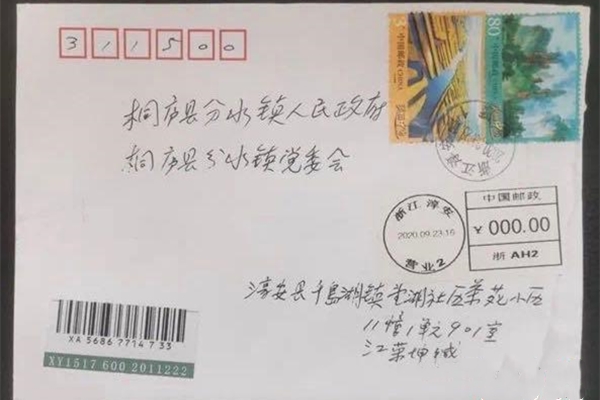 311500
桐庐县分水镇人民政府
桐庐县分水镇党委会
中国邮政 CHINA
80
中国邮政 CHINA
浙江 淳安
2020.09.23.16
营业2
中国邮政
¥ 000.00
浙 AH2
淳安县千岛湖镇 湖社区 苑小区
11幢1单元901室
江 坤缄
XA 5686 7714 7 33
XY1517 600 2011222